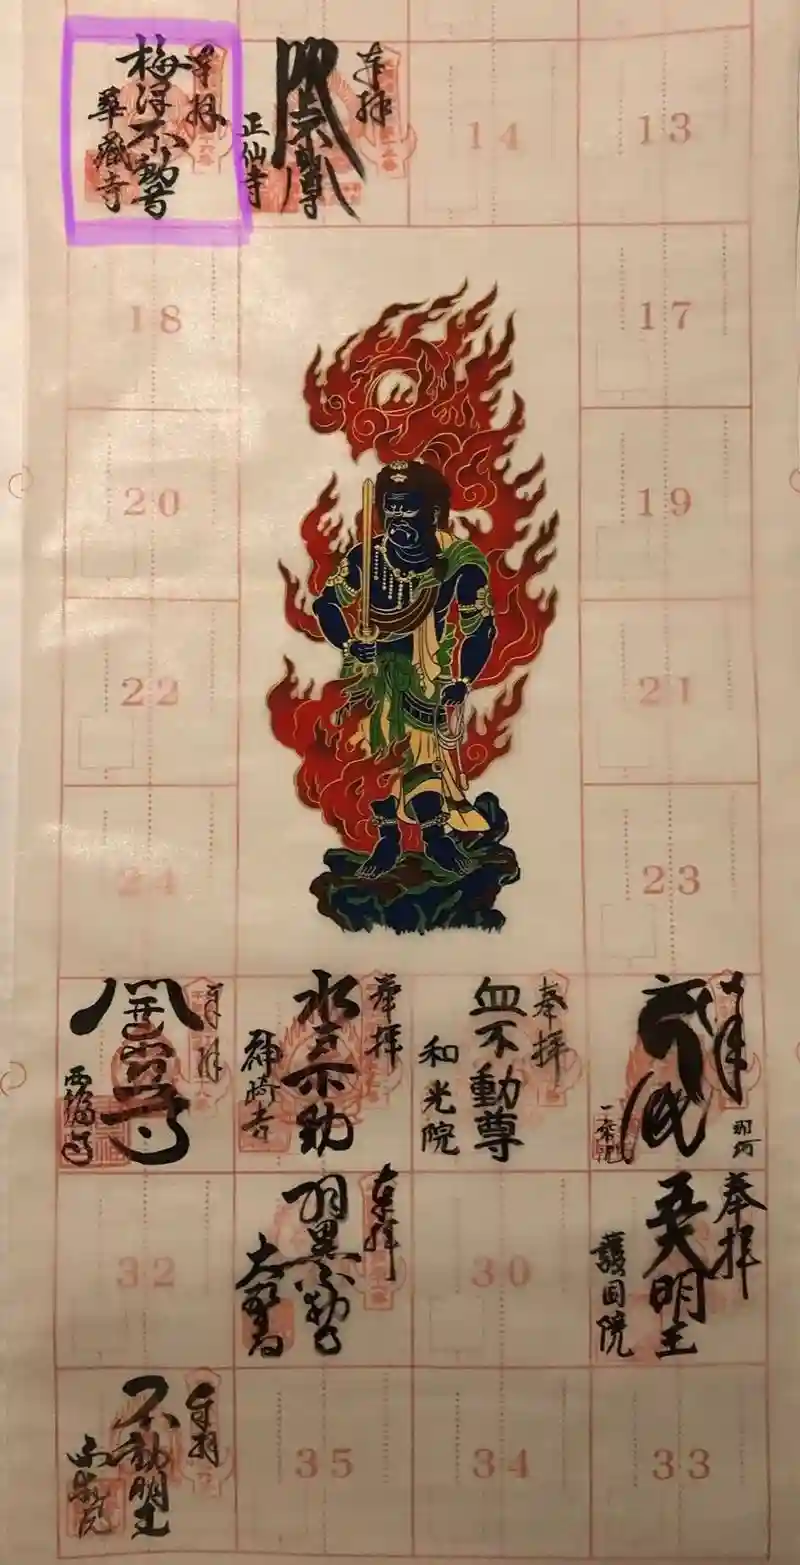 奉拝
梅浮不動尊
華蔵寺
奉拝
正仙寺
14
13
18
17
20
19
22
21
24
23
奉拝
西福寺
奉拝
水戸不動
神崎寺
奉拝
血不動尊
和光院
奉拝
那珂
一乗院
32
奉拝
30
奉拝
五大明王
護国院
奉拝
不動明王
35
34
33